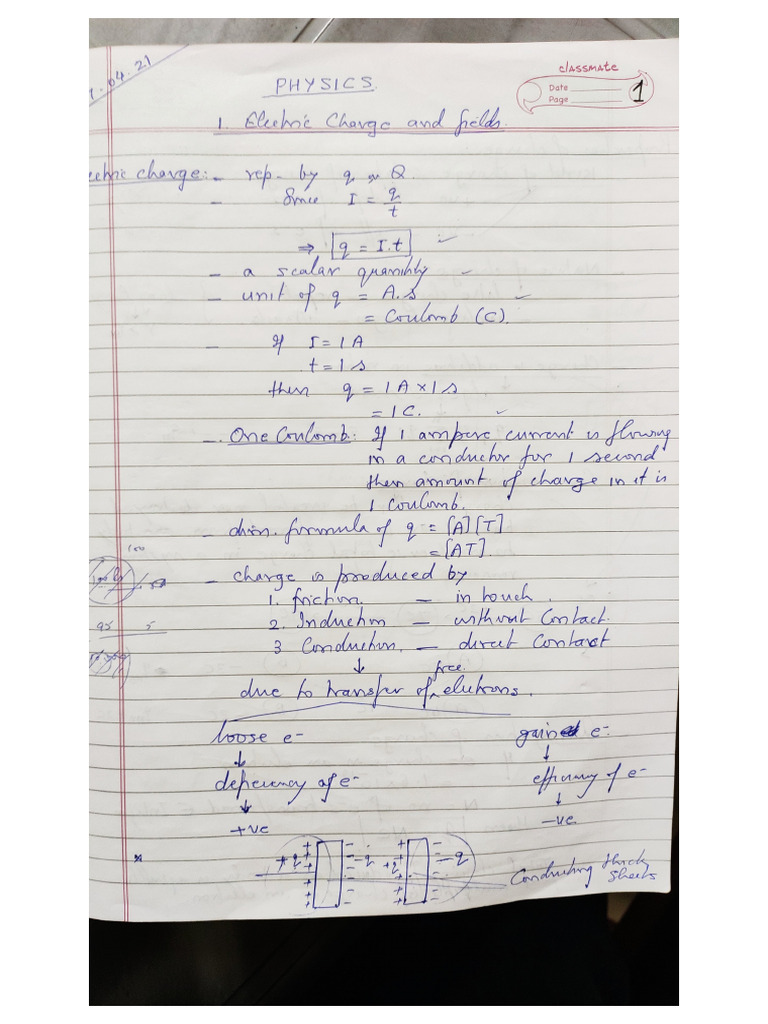 .04.21
PHYSICS.
classmate
Date
Page 1
1. Electric Charge and fields.
ectric charge:- - rep- by q or Q.
- Since I = q/t
⇒ q = I.t ✓
- a scalar quantity ✓
- unit of q = A.s ✓
= Coulomb (C).
- If I = 1 A
t = 1 s
then q = 1 A × 1 s
= 1 C. ✓
- One Coulomb: If 1 ampere current is flowing
in a conductor for 1 second
then amount of charge in it is
1 Coulomb.
- dim. formula of q = [A][T]
= [AT].
100
- charge is produced by
1. friction. — in touch.
95 5
2. Induction — without Contact.
3 Conduction. — direct Contact
↓
due to transfer of free electrons.
loose e- gain e-
↓ ↓
deficiency of e- efficiency of e-
↓ ↓
+ve -ve
+q + + + + + + - - - - - - -q +q + + + + + - - - - - -q
Conducting thick
sheets